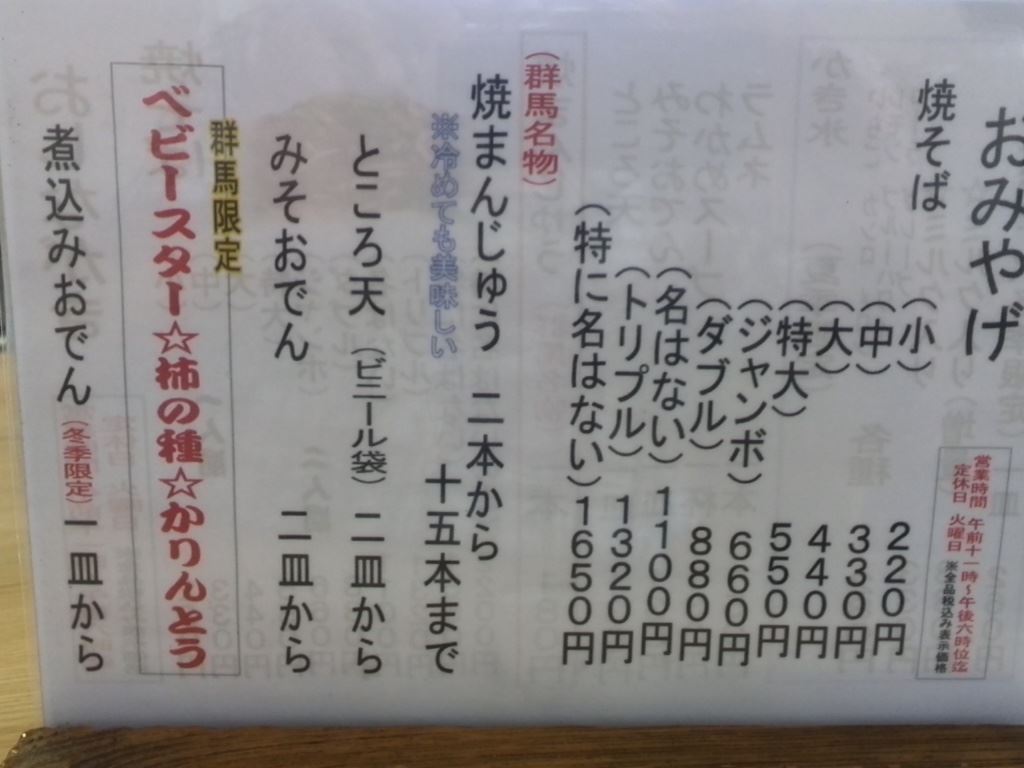 おみやげ
営業時間 午前十一時～午後六時位迄
定休日 火曜日 ※全品税込み表示価格
焼そば
(小) 220円
(中) 330円
(大) 440円
(特大) 550円
(ジャンボ) 660円
(ダブル) 880円
(名はない) 1100円
(トリプル) 1320円
(特に名はない) 1650円
(群馬名物)
焼まんじゅう 二本から
十五本まで
※冷めても美味しい
ところ天 (ビニール袋) 二皿から
みそおでん 二皿から
群馬限定
ベビースター☆柿の種☆かりんとう
煮込みおでん (冬季限定) 一皿から